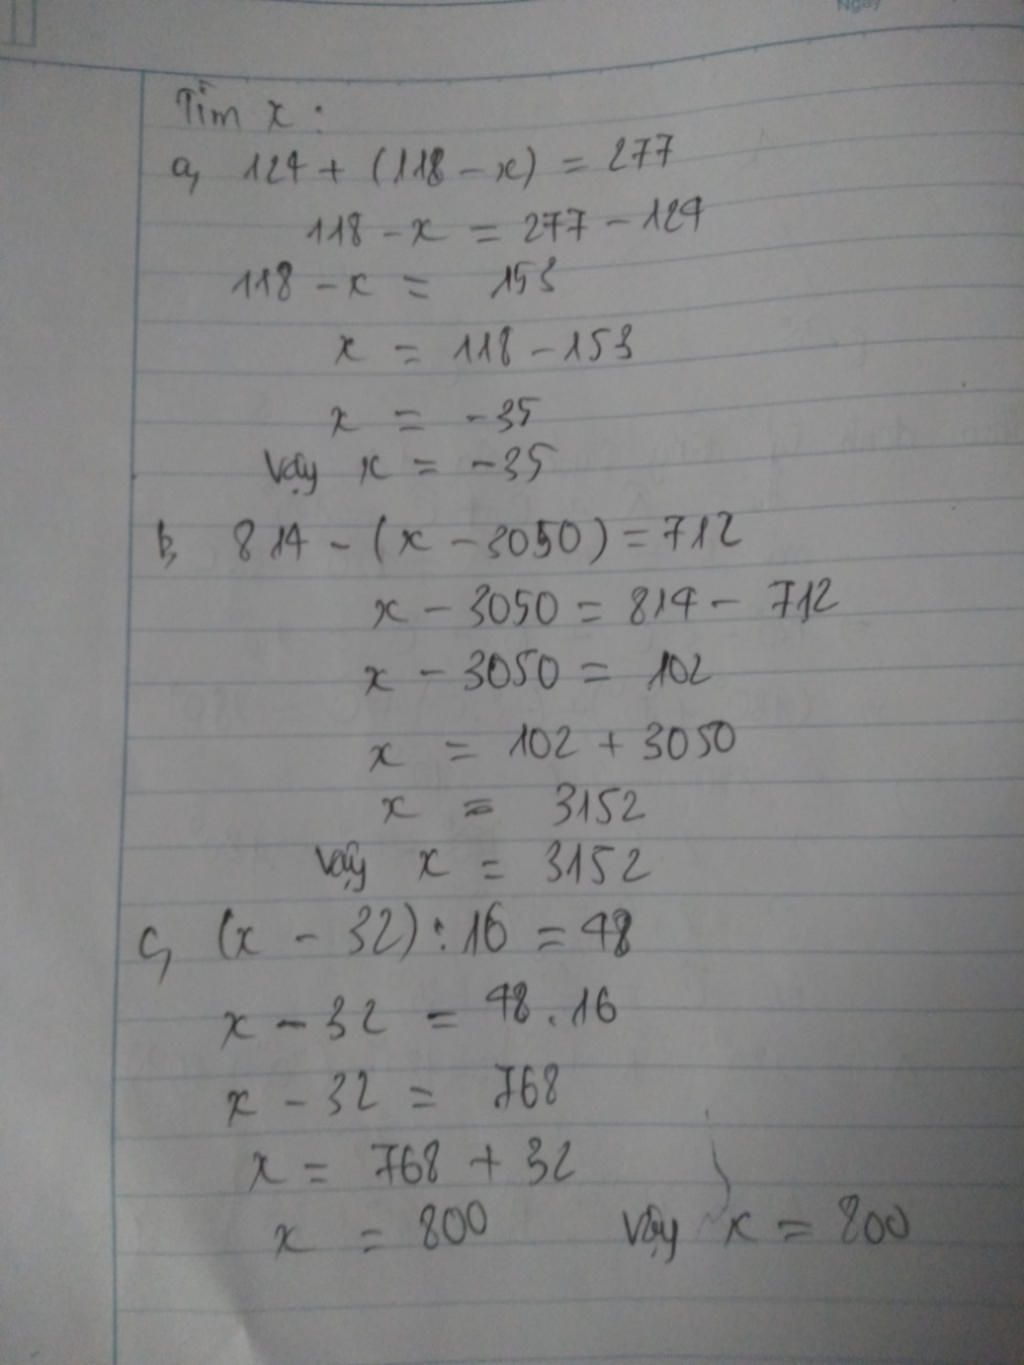 Ngày
Tìm x :
a, 124 + (118 - x) = 277
118 - x = 277 - 124
118 - x = 153
x = 118 - 153
x = -35
Vậy x = -35
b, 814 - (x - 3050) = 712
x - 3050 = 814 - 712
x - 3050 = 102
x = 102 + 3050
x = 3152
Vậy x = 3152
c, (x - 32) : 16 = 48
x - 32 = 48 . 16
x - 32 = 768
x = 768 + 32
x = 800 Vậy x = 800